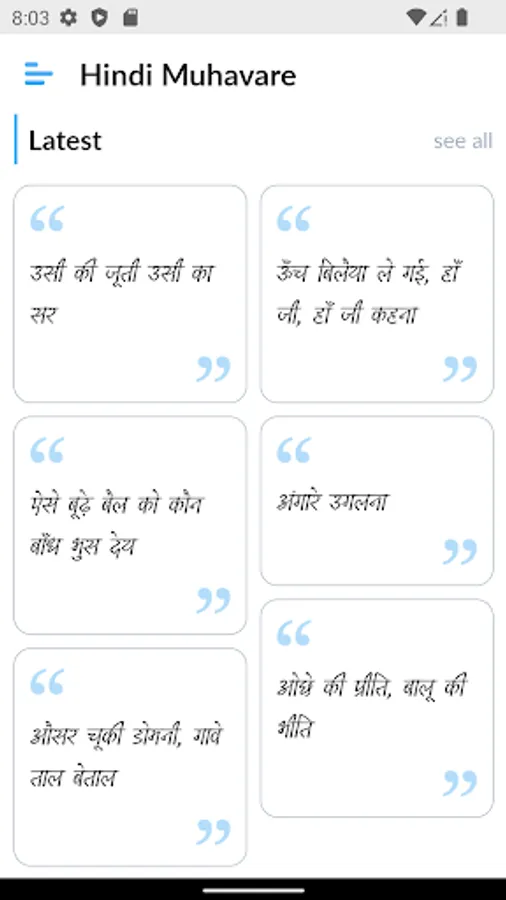 8:03
Hindi Muhavare
Latest
see all
उसी की जूती उसी का
सर
ऊँच बिलैया ले गई, हाँ
जी, हाँ जी कहना
ऐसे बूढ़े बैल को कौन
बाँध भुस देय
अंगारे उगलना
औसर चूकी डोमनी, गावे
ताल बेताल
ओछे की प्रीति, बालू की
भीति